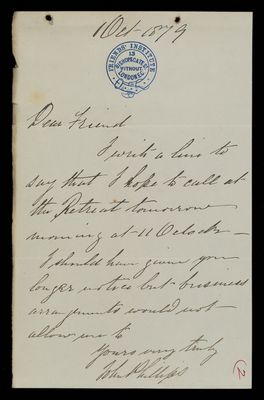 1 Oct 1879
FRIENDS' INSTITUTE
13
BISHOPSGATE ST
WITHOUT
LONDON E.C.
Dear Friend
I write a line to
say that I hope to call at
the Retreat tomorrow
morning at 11 Oclock —
I should have given you
longer notice but business
arrangements would not
allow me to
Yours very truly
John Phillips